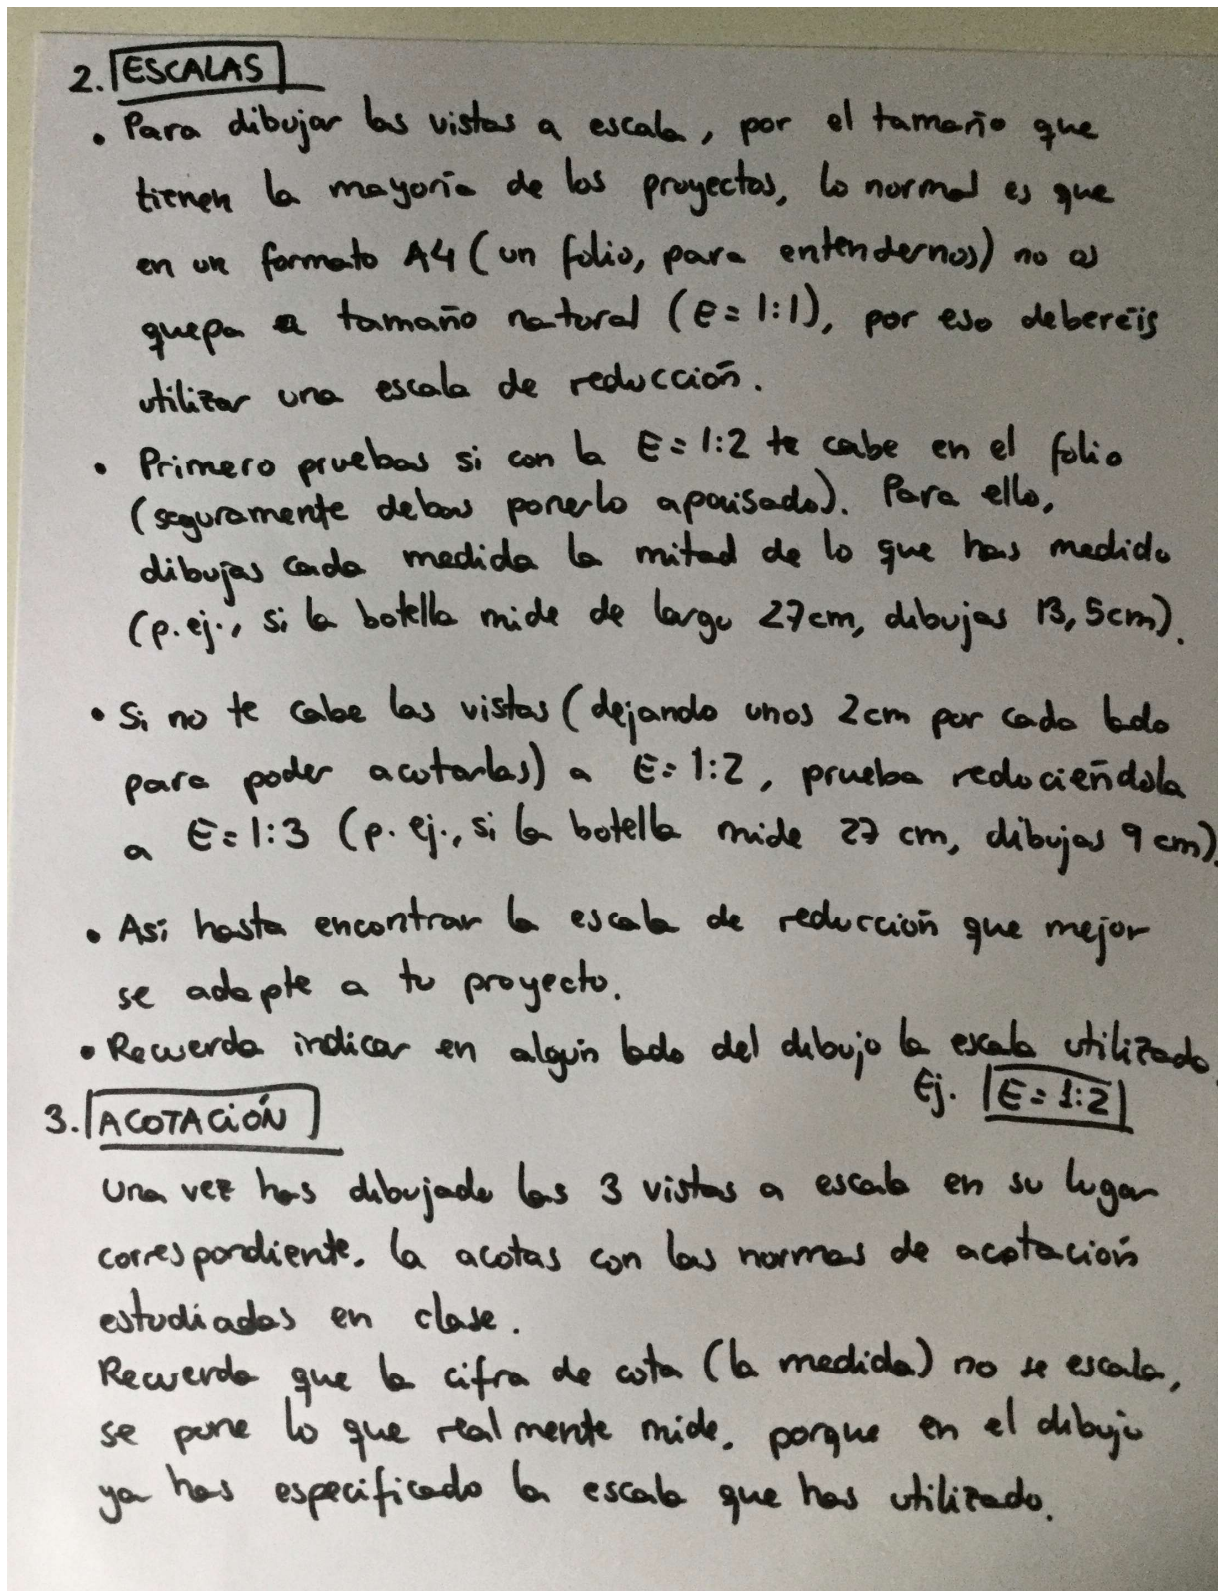 2. ESCALAS
• Para dibujar las vistas a escala, por el tamaño que
tienen la mayoría de los proyectos, lo normal es que
en un formato A4 (un folio, para entendernos) no os
quepa a tamaño natural (E = 1:1), por eso deberéis
utilizar una escala de reducción.
• Primero pruebas si con la E = 1:2 te cabe en el folio
(seguramente debas ponerlo apaisado). Para ello,
dibujas cada medida la mitad de lo que has medido
(p. ej., si la botella mide de largo 27cm, dibujas 13,5cm).
• Si no te cabe las vistas (dejando unos 2cm por cada lado
para poder acotarlas) a E = 1:2, prueba reduciéndola
a E = 1:3 (p. ej., si la botella mide 27 cm, dibujas 9 cm).
• Así hasta encontrar la escala de reducción que mejor
se adapte a tu proyecto.
• Recuerda indicar en algún lado del dibujo la escala utilizada.
Ej. E = 1:2
3. ACOTACIÓN
Una vez has dibujado las 3 vistas a escala en su lugar
correspondiente, la acotas con las normas de acotación
estudiadas en clase.
Recuerda que la cifra de cota (la medida) no se escala,
se pone lo que realmente mide, porque en el dibujo
ya has especificado la escala que has utilizado.